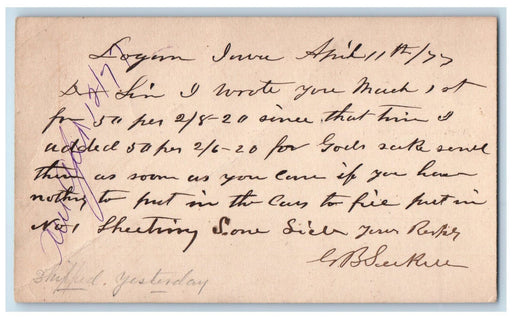 Logan Iowa April 11th/77
Dr Sir I wrote you March 1st
for 50 per 2/8-20 since that time I
added 50 per 2/6-20 for Gods sake send
them as soon as you can if you have
nothing to put in the Cars to fill put in
No 1 Sheeting one Side Your Resply
G B
Shipped. Yesterday